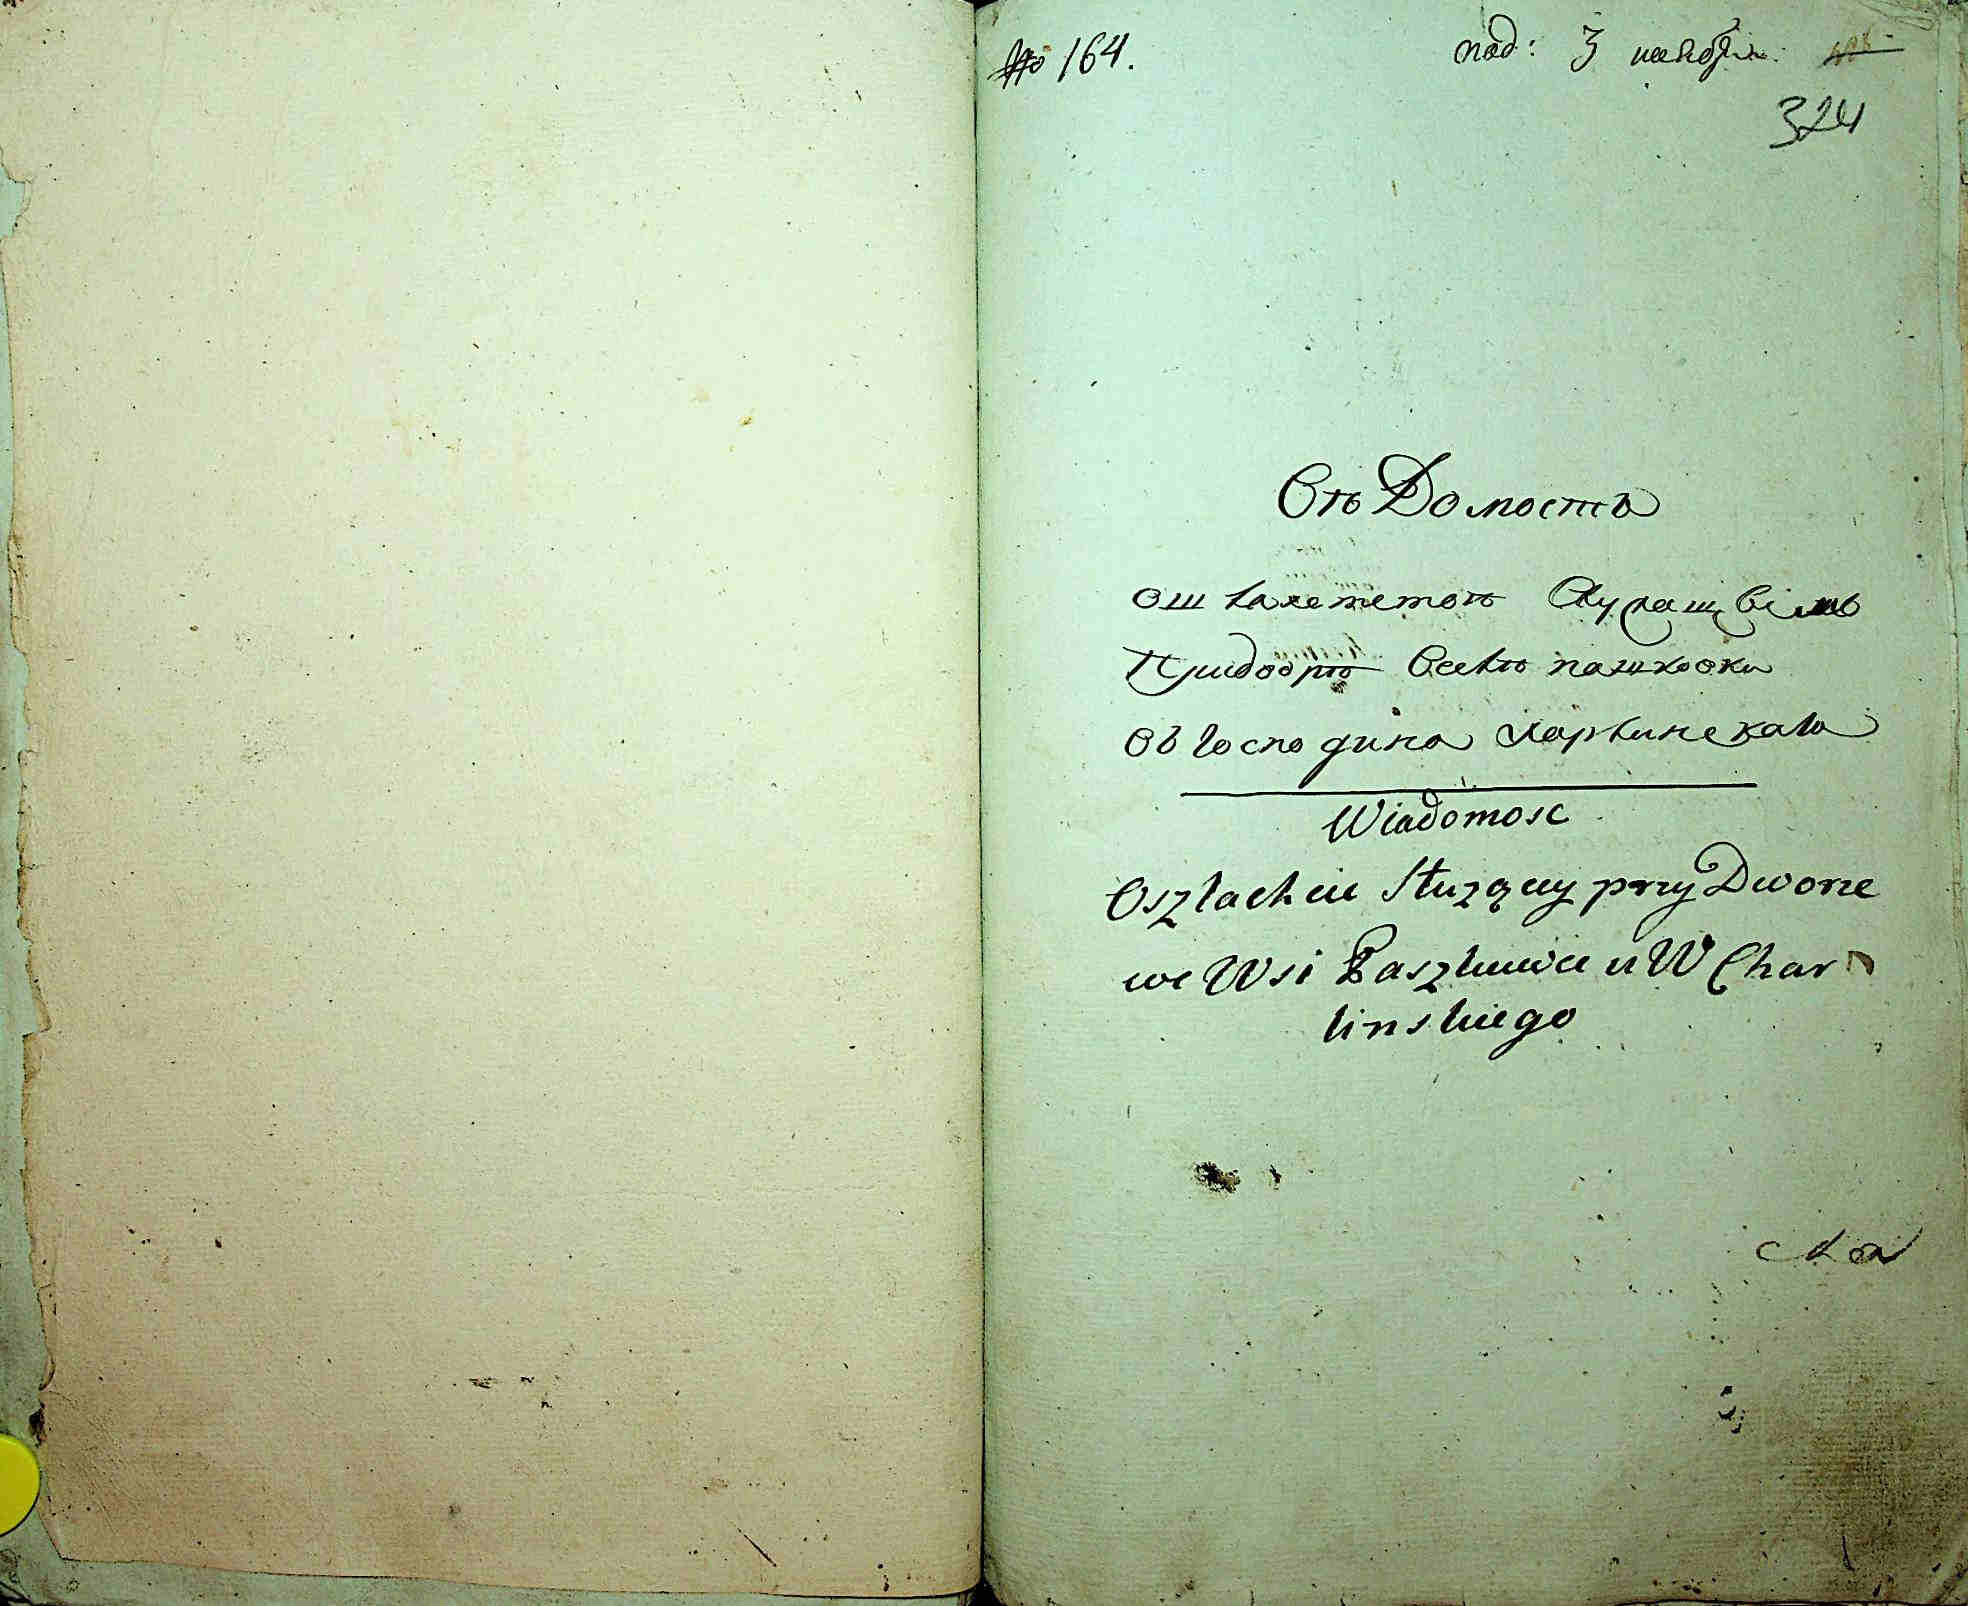 № 164.
под: 3 ноября:
324
Вѣ Домость
о шляхететвѣ Служащвимъ
Придворѣ Селѣ пашковки
Ов Господина Харлинскаго
Wiadomosc
Oszlachcie Służący przy Dworze
we Wsi Paszkowce u W Char
linskiego